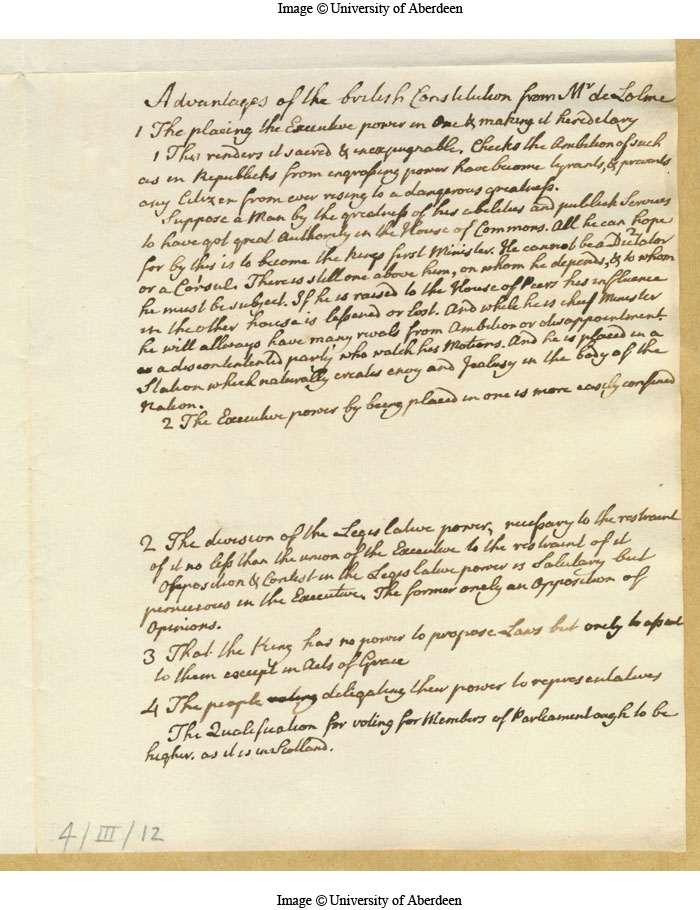 Image © University of Aberdeen
Advantages of the british Constitution from Mr de Lolme
1 The placing the Executive power in One & making it hereditary
1 This renders it sacred & inexpugnable. Checks the Ambition of such
as in Republicks from engrossing power have become tyrants, & prevents
any Citizen from ever rising to a dangerous greatness.
Suppose a Man by the greatness of his abilities and publick Services
to have got great Authority in the House of Commons. All he can hope
for by this is to become the Kings first Minister. He cannot be a Dictator
or a Consul. There is still one above him, on whom he depends, & to whom
he must be subject. If he is raised to the House of Peers his influence
in the other house is lessened or lost. And while he is chief Minister
he will allways have many rivals from Ambition or disappointment
a discontented party who watch his Motions. And he is placed in a
Station which naturally creates envy and Jealusy in the body of the
Nation.
2 The Executive power by being placed in one is more easily confined
2 The division of the Legislative power, necessary to the restraint
of it no less than the union of the Executive to the restraint of it
Opposition & Contest in the Legislative power is Salutary but
pernicious in the Executive. The former onely an Opposition of
Opinions.
3 That the King has no power to propose Laws but onely to assent
to them except in Acts of Grace
4 The people voting deligating their power to representatives
The Qualification for voting for Members of Parliament ough to be
higher. as it is in Scotland.
4/III/12
Image © University of Aberdeen